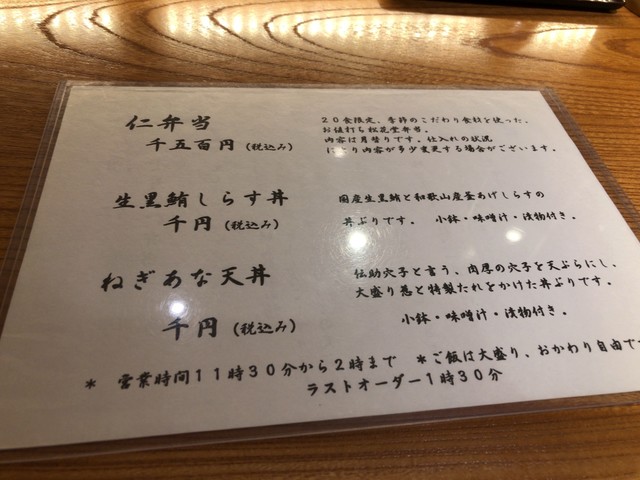 仁弁当
千五百円(税込み)
20食限定、季節のこだわり食材を使った、
お値打ち松花堂弁当。
内容は月替りです。仕入れの状況
により内容が多少変更する場合がございます。
生黒鮪しらす丼
千円(税込み)
国産生黒鮪と和歌山産釜あげしらすの
丼ぶりです。 小鉢・味噌汁・漬物付き。
ねぎあな天丼
千円(税込み)
伝助穴子と言う、肉厚の穴子を天ぷらにし、
大盛り葱と特製たれをかけた丼ぶりです。
小鉢・味噌汁・漬物付き。
* 営業時間11時30分から2時まで *ご飯は大盛り、おかわり自由で
ラストオーダー1時30分